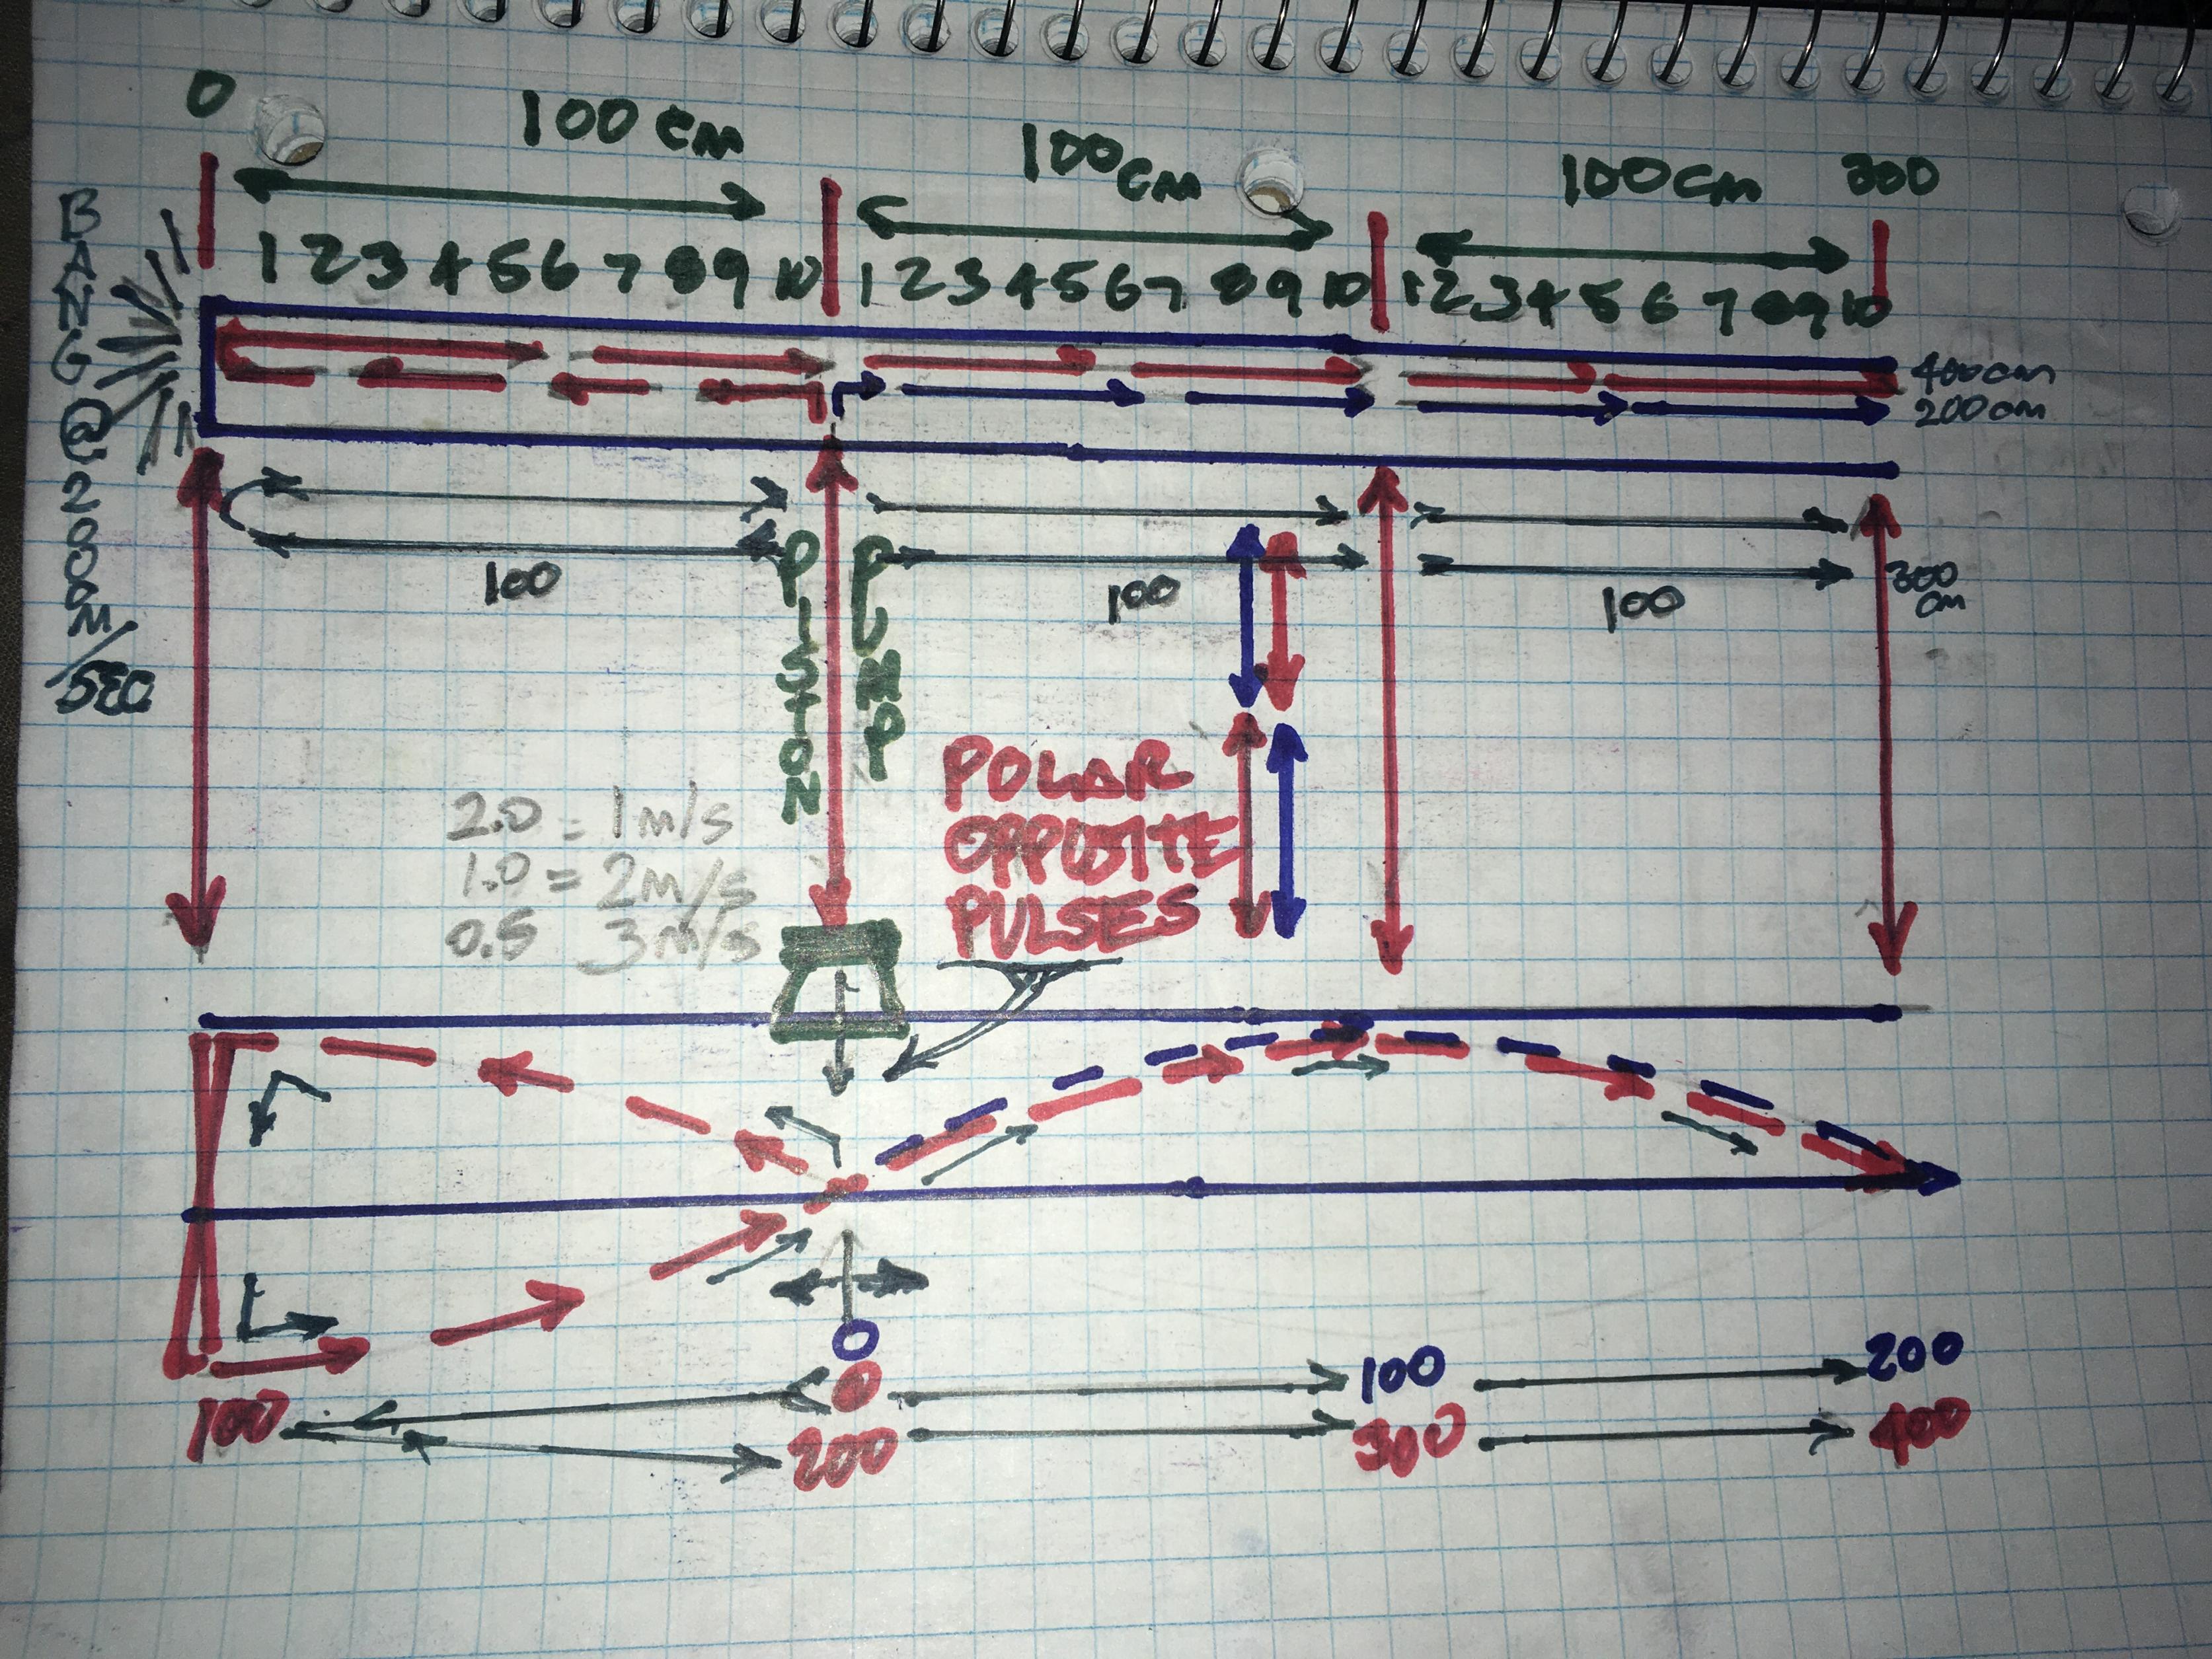 0
100 cm
100cm
100cm
300
1 2 3 4 5 6 7 8 9 10 1 2 3 4 5 6 7 8 9 10 1 2 3 4 5 6 7 8 9 10
BANG@200cm/SEC
400cm
200cm
100
100
100
300
cm
PISTON
PUMP
2.0 = 1m/s
1.0 = 2m/s
0.5 3m/s
POLAR
OPPOSITE
PULSES
0
100
200
0
100
200
300
400